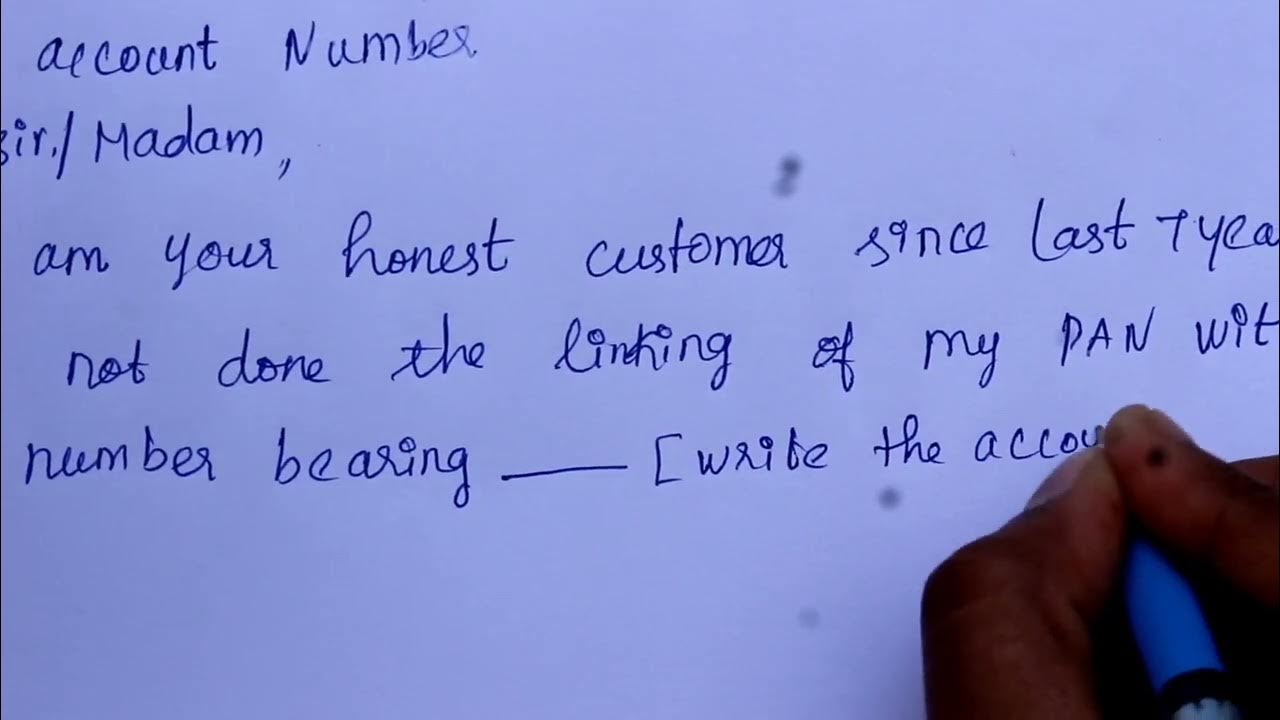 account Number
Sir./Madam,
am your honest customer since last 7 yea
not done the linking of my PAN wit
number bearing ——— [write the accou